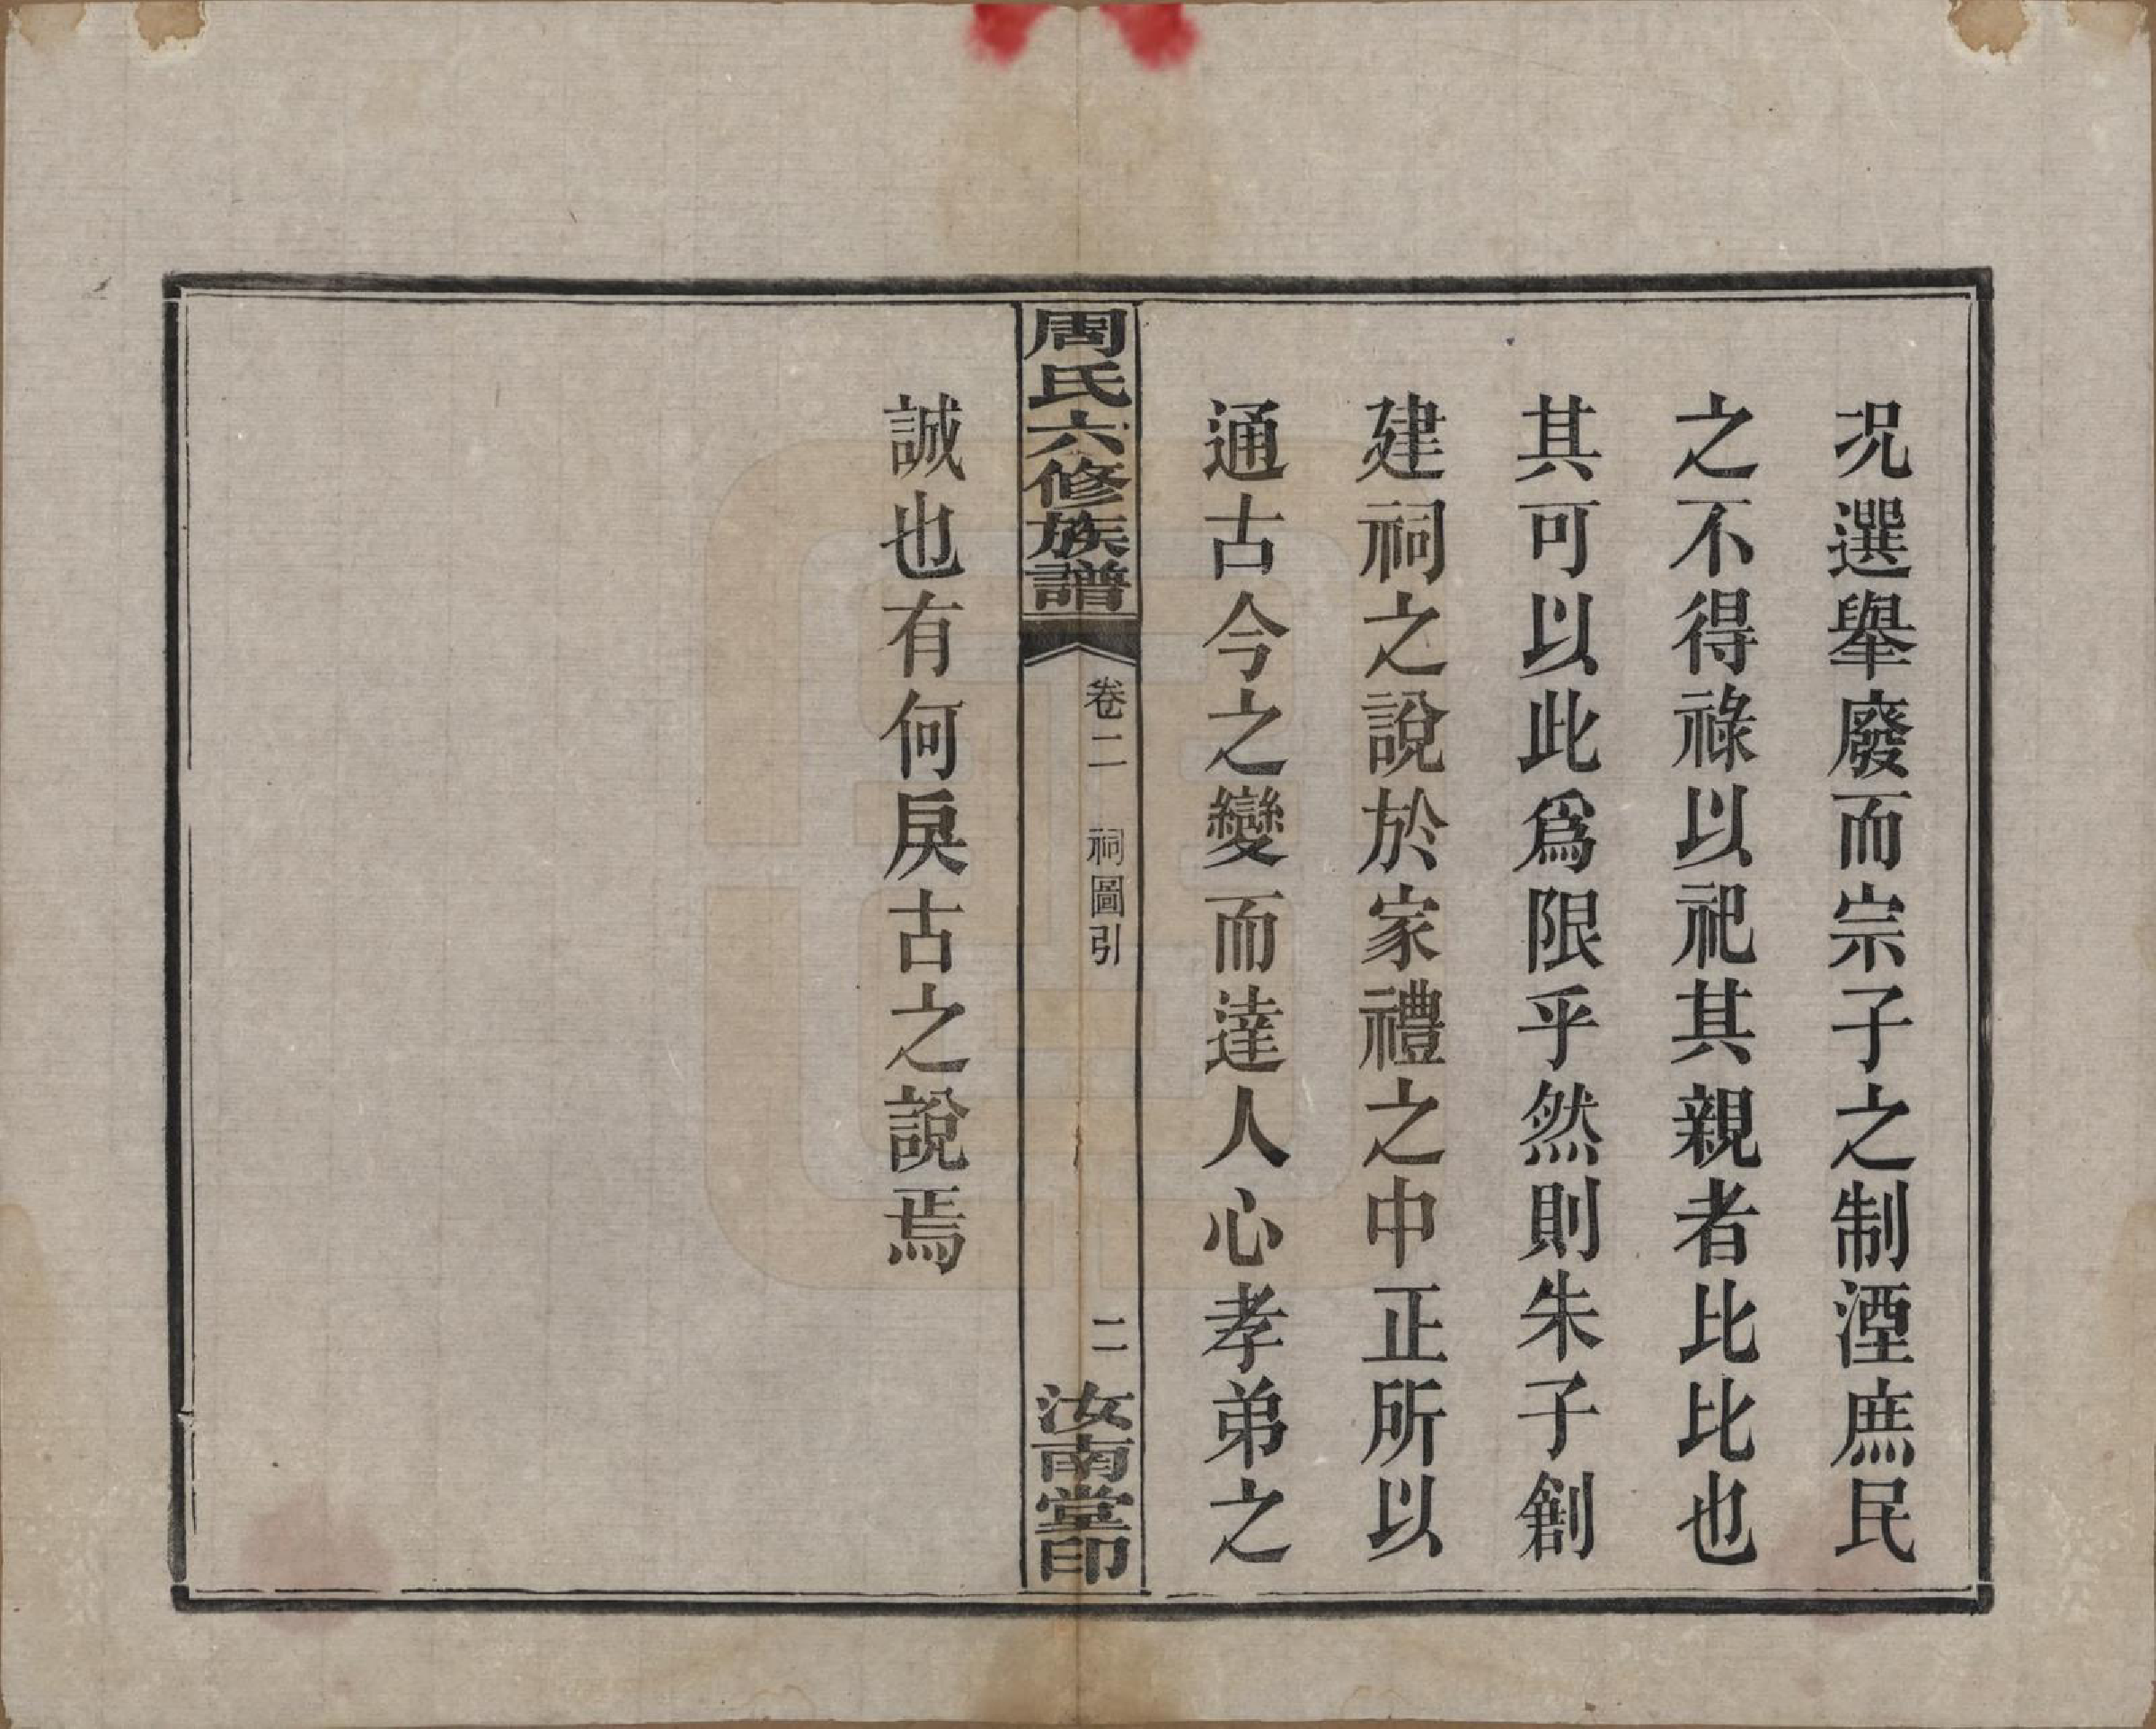 况選舉廢而宗子之制湮庶民
之不得祿以祀其親者比比也
其可以此爲限乎然則朱子創
建祠之說於家禮之中正所以
通古今之變而達人心孝弟之
周氏六修族譜
卷二
祠圖引
二
汝南堂印
誠也有何戾古之說焉